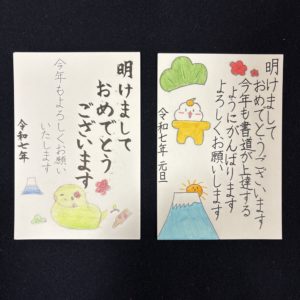 明けまして
おめでとう
ございます
今年もよろしくお願い
いたします
令和七年
明けまして
おめでとうございます
今年も書道が上達する
ようにがんばります
よろしくお願いします
令和七年 元旦